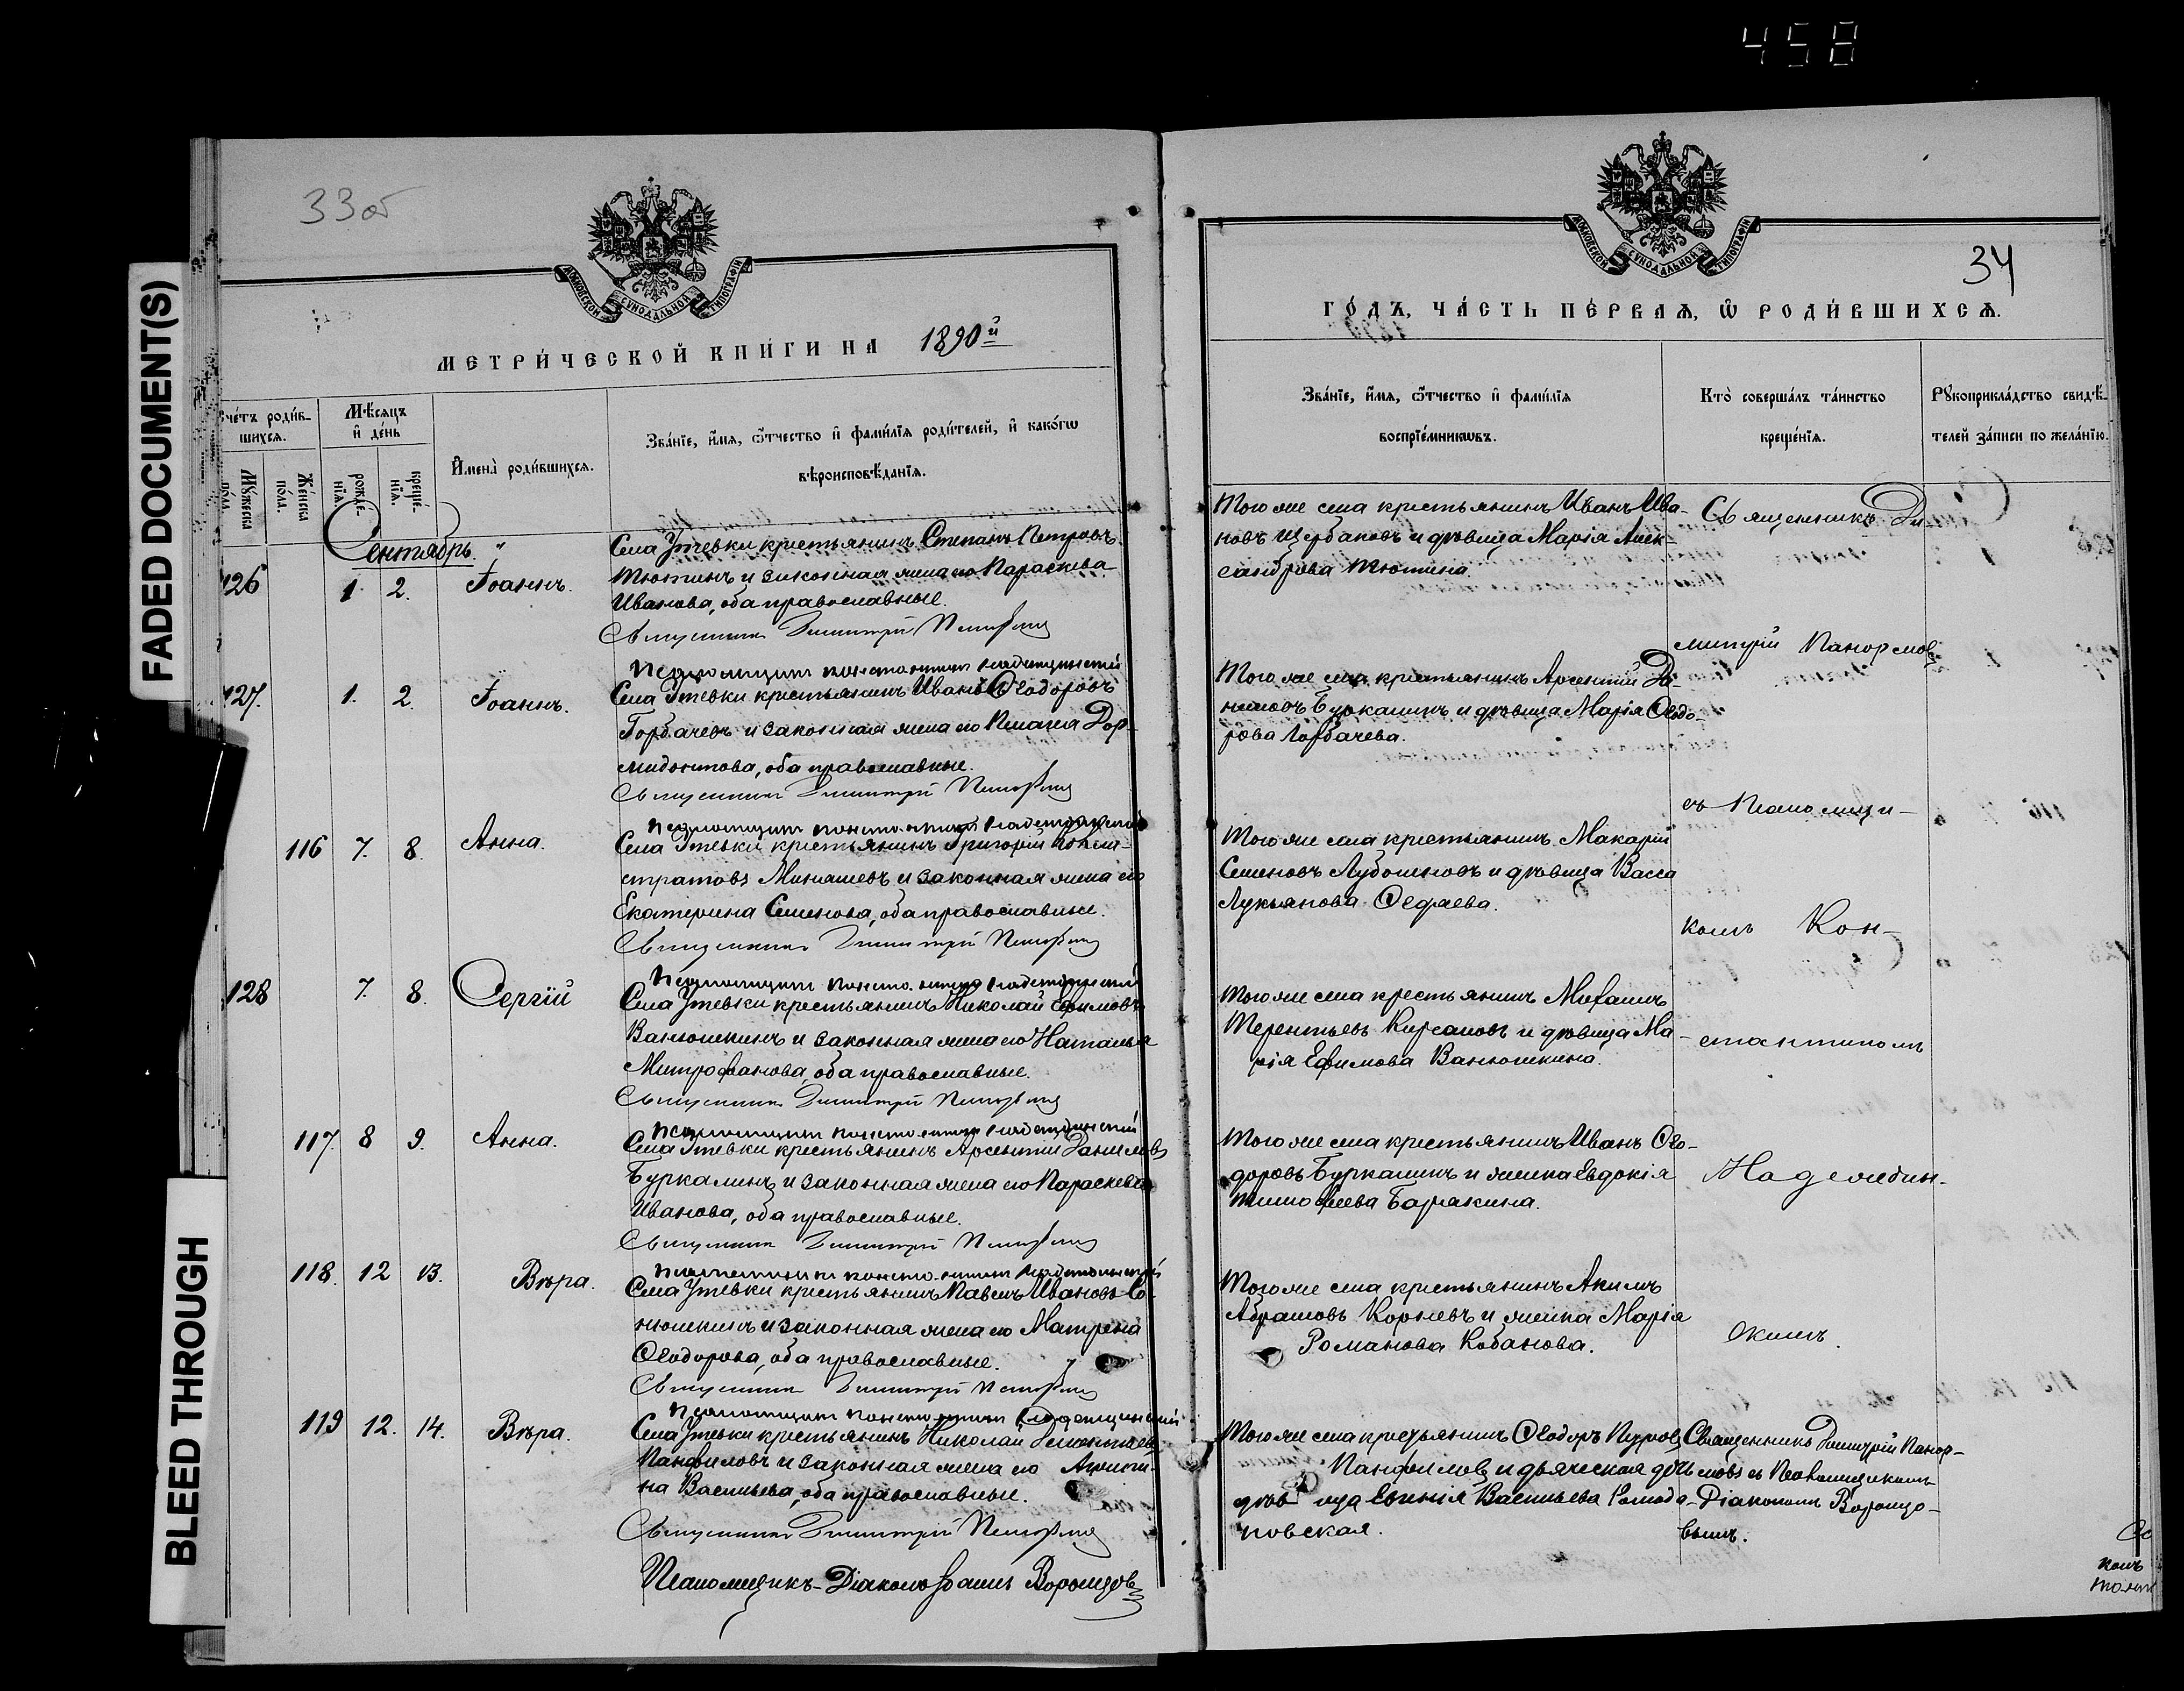 458
FADED DOCUMENT(S)
BLEED THROUGH
33об
МОСКОВСКОЙ СѴНОДАЛЬНОЙ ТИПОГРАФІИ
МЕТРИ́ЧЕСКОЙ КНИ́ГИ НА 1890й
Сче́тъ роди́в-
шихсѧ.
Мꙋ́жеска по́ла.
Же́нска по́ла.
Мѣ́сяцъ и҆ де́нь
рожде́-нїѧ.
креще́-нїѧ.
И҆мена̀ роди́вшихсѧ.
Зва́нїе, и҆́мѧ, ѻ҆́тчество и҆ фами́лїѧ роди́телей, и҆ како́гѡ
вѣроисповѣ́данїѧ.
Сентябрь.
126 1. 2. Іоаннъ.
Села Утевки крестьянинъ Степанъ Петровъ
Тютинъ и законная жена его Параскева
Иванова, оба православные.
Священникъ Димитрій Панормов
Псаломщикъ Константинъ Надеждинскій
127. 1. 2. Іоаннъ.
Села Утевки крестьянинъ Иванъ Ѳеодоровъ
Горбачевъ и законная жена его Пелагея Дор-
мидонтова, оба православные.
Священникъ Димитрій Панормов
Псаломщикъ Константинъ Надеждинскій
116 7. 8. Анна.
Села Утевки крестьянинъ Григорій
стратовъ Минашевъ и законная жена его
Екатерина Семенова, оба православные.
Священникъ Димитрій Панормов
Псаломщикъ Константинъ Надеждинскій
128 7. 8. Сергій
Села Утевки крестьянинъ Николай Ефимовъ
Ванюшкинъ и законная жена его Наталья
Митрофанова, оба православные.
Священникъ Димитрій Панормов
Псаломщикъ Константинъ Надеждинскій
117. 8 9. Анна.
Села Утевки крестьянинъ Арсентій Даниловъ
Буркалинъ и законная жена его Параскева
Иванова, оба православные.
Священникъ Димитрій Панормов
Псаломщикъ Константинъ Надеждинскій
118. 12 13. Вѣра.
Села Утевки крестьянинъ Павелъ Ивановъ Со-
нюшкинъ и законная жена его Матрена
Ѳеодорова, оба православные.
Священникъ Димитрій Панормов
Псаломщикъ Константинъ Надеждинскій
119 12. 14. Вѣра.
Села Утевки крестьянинъ Николай
Панфиловъ и законная жена его
на Васильева, оба православные.
Священникъ Димитрій Панормов
Псаломщикъ-Діаконъ Іоаннъ Воронцовъ
МОСКОВСКОЙ СѴНОДАЛЬНОЙ ТИПОГРАФІИ
34
ГО́ДЪ, ЧА́СТЬ ПЕ́РВАѦ, Ѡ҆ РОДИ́ВШИХСѦ.
Зва́нїе, и҆́мѧ, ѻ҆́тчество и҆ фами́лїѧ
воспрїе́мникѡвъ.
Кто̀ соверша́лъ та́инство
креще́нїѧ.
Рꙋкоприкла́дство свидѣ́-
телей за́писи по жела́нїю.
Того же села крестьянинъ Иванъ Ива-
новъ Щербаковъ и дѣвица Марія Алек-
сандрова Тютина.
Священникъ Ди-
митрій Панормовъ
Того же села крестьянинъ Арсентій Да-
ниловъ Буркалинъ и дѣвица Марія Ѳеодо-
рова Горбачева.
съ Псаломщи-
Того же села крестьянинъ Макарій
Семеновъ Лубошновъ и дѣвица Васса
Лукьянова Федяева.
комъ Кон-
Того же села крестьянинъ Михаилъ
Терентьевъ Кирсановъ и дѣвица Ма-
рія Ефимова Ванюшкина.
стантиномъ
Того же села крестьянинъ Иванъ Ѳео-
доровъ Буркалинъ и женка Евдокія
Тимофеева Баракина.
Надеждин-
Того же села крестьянинъ Акимъ
Абрамовъ Корневъ и женка Марія
Романова Кобанова.
скимъ.
Того же села крестьянинъ Ѳеодоръ
Панфиловъ и дьяческая дочь
дѣвица Евгенія Васильева Ромода-
новская.
Священникъ Димитрій Панор-
мовъ съ Псаломщикомъ
Діакономъ Воронцо-
вымъ.
комъ